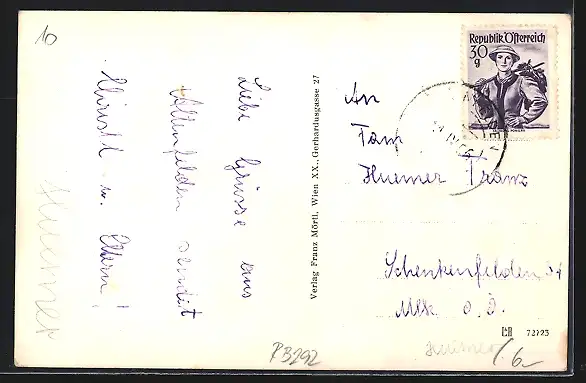 10
Liebe Grüsse aus
Altenfelden sendet
Christl u. Eltern!
Huemer
Verlag Franz Mörtl, Wien XX., Gerhardusgasse 27
Republik Österreich
30
g
An
Fam
Huemer Franz
Schenkenfelden 34
Mlk. o. Ö.
LR 72723
PB292
Huemer
6-